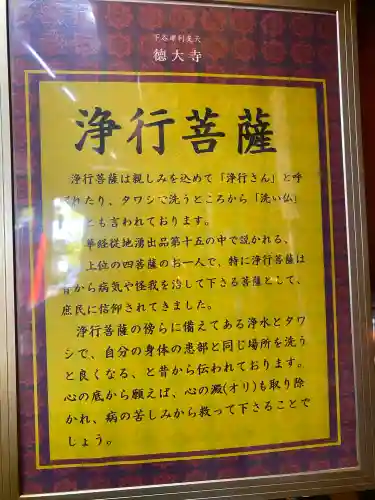 下谷摩利支天
徳大寺
浄行菩薩
浄行菩薩は親しみを込めて「浄行さん」と呼
れたり、タワシで洗うところから「洗い仏」
とも言われております。
華経従地湧出品第十五の中で説かれる、
上位の四菩薩のお一人で、特に浄行菩薩は
昔から病気や怪我を治して下さる菩薩として、
庶民に信仰されてきました。
浄行菩薩の傍らに備えてある浄水とタワ
シで、自分の身体の患部と同じ場所を洗う
と良くなる、と昔から伝われております。
心の底から願えば、心の澱(オリ)も取り除
かれ、病の苦しみから救って下さることで
しょう。